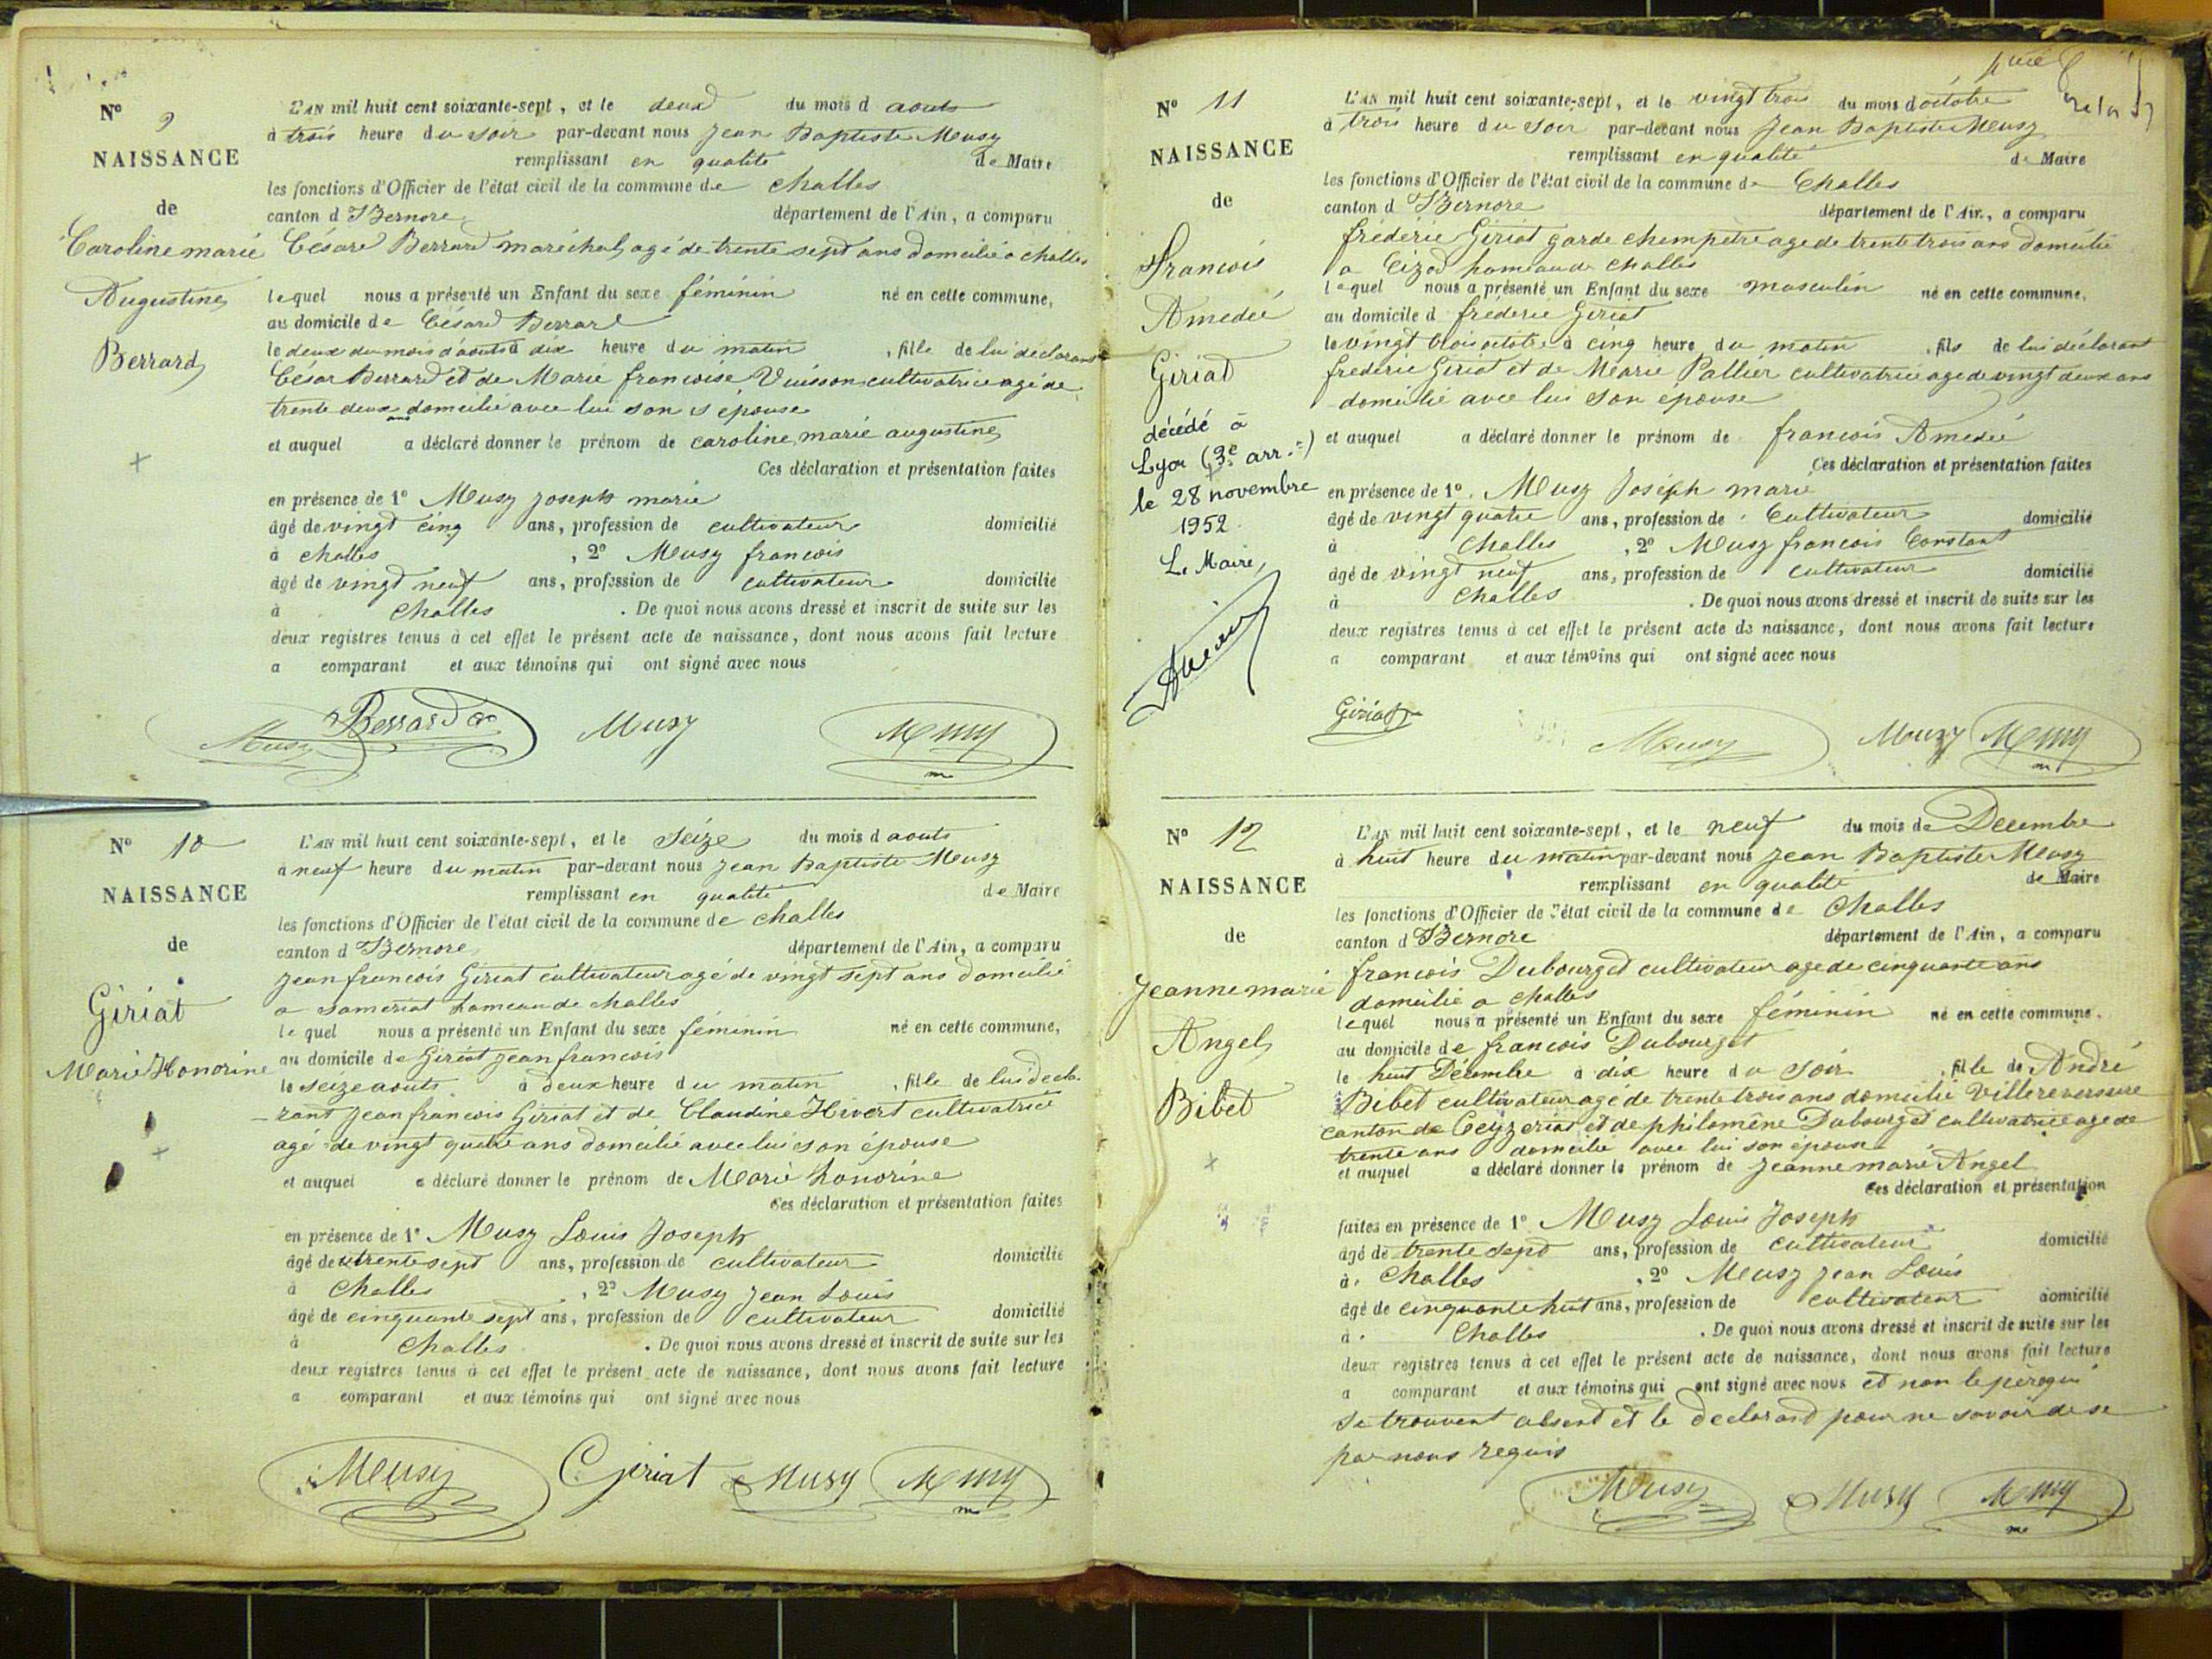 N° 9
NAISSANCE
de
Caroline marie
Augustine
Berrard
L'AN mil huit cent soixante-sept, et le deux du mois d aouts
à trois heure du soir par-devant nous Jean Baptiste Musy
remplissant en qualité de Maire
les fonctions d'Officier de l'état civil de la commune de Challes
canton d Izernore département de l'Ain, a comparu
César Berrard maréchal agé de trente sept ans domicilié a challes
lequel nous a présenté un Enfant du sexe féminin né en cette commune,
au domicile de César Berrard
le deux du mois d'aouts à dix heure du matin, fille de lui déclarant
César Berrard et de Marie francoise Vuisson cultivatrice agé de
trente deux ans domicilié avec lui son s épouse
et auquel a déclaré donner le prénom de caroline marie augustine
Ces déclaration et présentation faites
en présence de 1° Musy joseph marie
âgé de vingt cinq ans, profession de cultivateur domicilié
à challes, 2° Musy francois
âgé de vingt neuf ans, profession de cultivateur domicilié
à Challes. De quoi nous avons dressé et inscrit de suite sur les
deux registres tenus à cet effet le présent acte de naissance, dont nous avons fait lecture
a comparant et aux témoins qui ont signé avec nous
Musy Berrard Musy Musy
N° 10
NAISSANCE
de
Giriat
Marie Honorine
L'AN mil huit cent soixante-sept, et le Seize du mois d aouts
à neuf heure du matin par-devant nous Jean Baptiste Musy
remplissant en qualité de Maire
les fonctions d'Officier de l'état civil de la commune de challes
canton d Izernore département de l'Ain, a comparu
jean francois Giriat cultivateur agé de vingt sept ans domicilié
a Sameriat hameau de challes
lequel nous a présenté un Enfant du sexe féminin né en cette commune,
au domicile de Giriat jean francois
le seize aouts à deux heure du matin, fille de lui décla-
rant jean francois Giriat et de Claudine Hivert cultivatrice
agé de vingt quatre ans domicilié avec lui son épouse
et auquel a déclaré donner le prénom de Marie honorine
Ces déclaration et présentation faites
en présence de 1° Musy Louis Joseph
âgé de trente sept ans, profession de cultivateur domicilié
à Challes, 2° Musy jean Louis
âgé de cinquante sept ans, profession de cultivateur domicilié
à Challes. De quoi nous avons dressé et inscrit de suite sur les
deux registres tenus à cet effet le présent acte de naissance, dont nous avons fait lecture
a comparant et aux témoins qui ont signé avec nous
Musy Giriat Musy Musy
N° 11
NAISSANCE
de
Francois
Amedée
Giriat
décédé à
Lyon (3e arr.t)
le 28 novembre
1952
Le Maire,
L'AN mil huit cent soixante-sept, et le vingt trois du mois d octobre
à trois heure du soir par-devant nous Jean Baptiste Musy
remplissant en qualité de Maire
les fonctions d'Officier de l'état civil de la commune de Challes
canton d Izernore département de l'Ain, a comparu
frédéric Giriat garde champetre age de trente trois ans domicilié
a Cizod hameau de challes
lequel nous a présenté un Enfant du sexe masculin né en cette commune,
au domicile d frédéric Giriat
le vingt trois octobre à cinq heure du matin, fils de lui déclarant
frédéric Giriat et de Marie Pallier cultivatrice age de vingt deux ans
domicilié avec lui son épouse
et auquel a déclaré donner le prénom de francois Amedée
Ces déclaration et présentation faites
en présence de 1° Musy Joseph marie
âgé de vingt quatre ans, profession de Cultivateur domicilié
à Challes, 2° Musy francois Constant
âgé de vingt neuf ans, profession de cultivateur domicilié
à Challes. De quoi nous avons dressé et inscrit de suite sur les
deux registres tenus à cet effet le présent acte de naissance, dont nous avons fait lecture
a comparant et aux témoins qui ont signé avec nous
Giriat Musy Musy Musy
N° 12
NAISSANCE
de
Jeanne marie
Angel
Bibet
L'AN mil huit cent soixante-sept, et le neuf du mois de Décembre
à huit heure du matin par-devant nous Jean Baptiste Musy
remplissant en qualité de Maire
les fonctions d'Officier de l'état civil de la commune de Challes
canton d Izernore département de l'Ain, a comparu
francois Dubourget cultivateur age de cinquante ans
domicilié a challes
lequel nous a présenté un Enfant du sexe féminin né en cette commune,
au domicile de francois Dubourget
le huit Décembre à dix heure du soir, fille de André
Bibet cultivateur agé de trente trois ans domicilié Villereversure
canton de Ceyzerias et de philomène Dubourget cultivatrice age de
trente ans domicilié avec lui son épouse
et auquel a déclaré donner le prénom de jeanne marie Angel
Ces déclaration et présentation
faites en présence de 1° Musy Louis Joseph
âgé de trente sept ans, profession de cultivateur domicilié
à Challes, 2° Musy jean Louis
âgé de cinquante huit ans, profession de cultivateur domicilié
à Challes. De quoi nous avons dressé et inscrit de suite sur les
deux registres tenus à cet effet le présent acte de naissance, dont nous avons fait lecture
a comparant et aux témoins qui ont signé avec nous et non le père qui
se trouvent absent et le déclarant pour ne savoir de ce
par nous requis
Musy Musy Musy